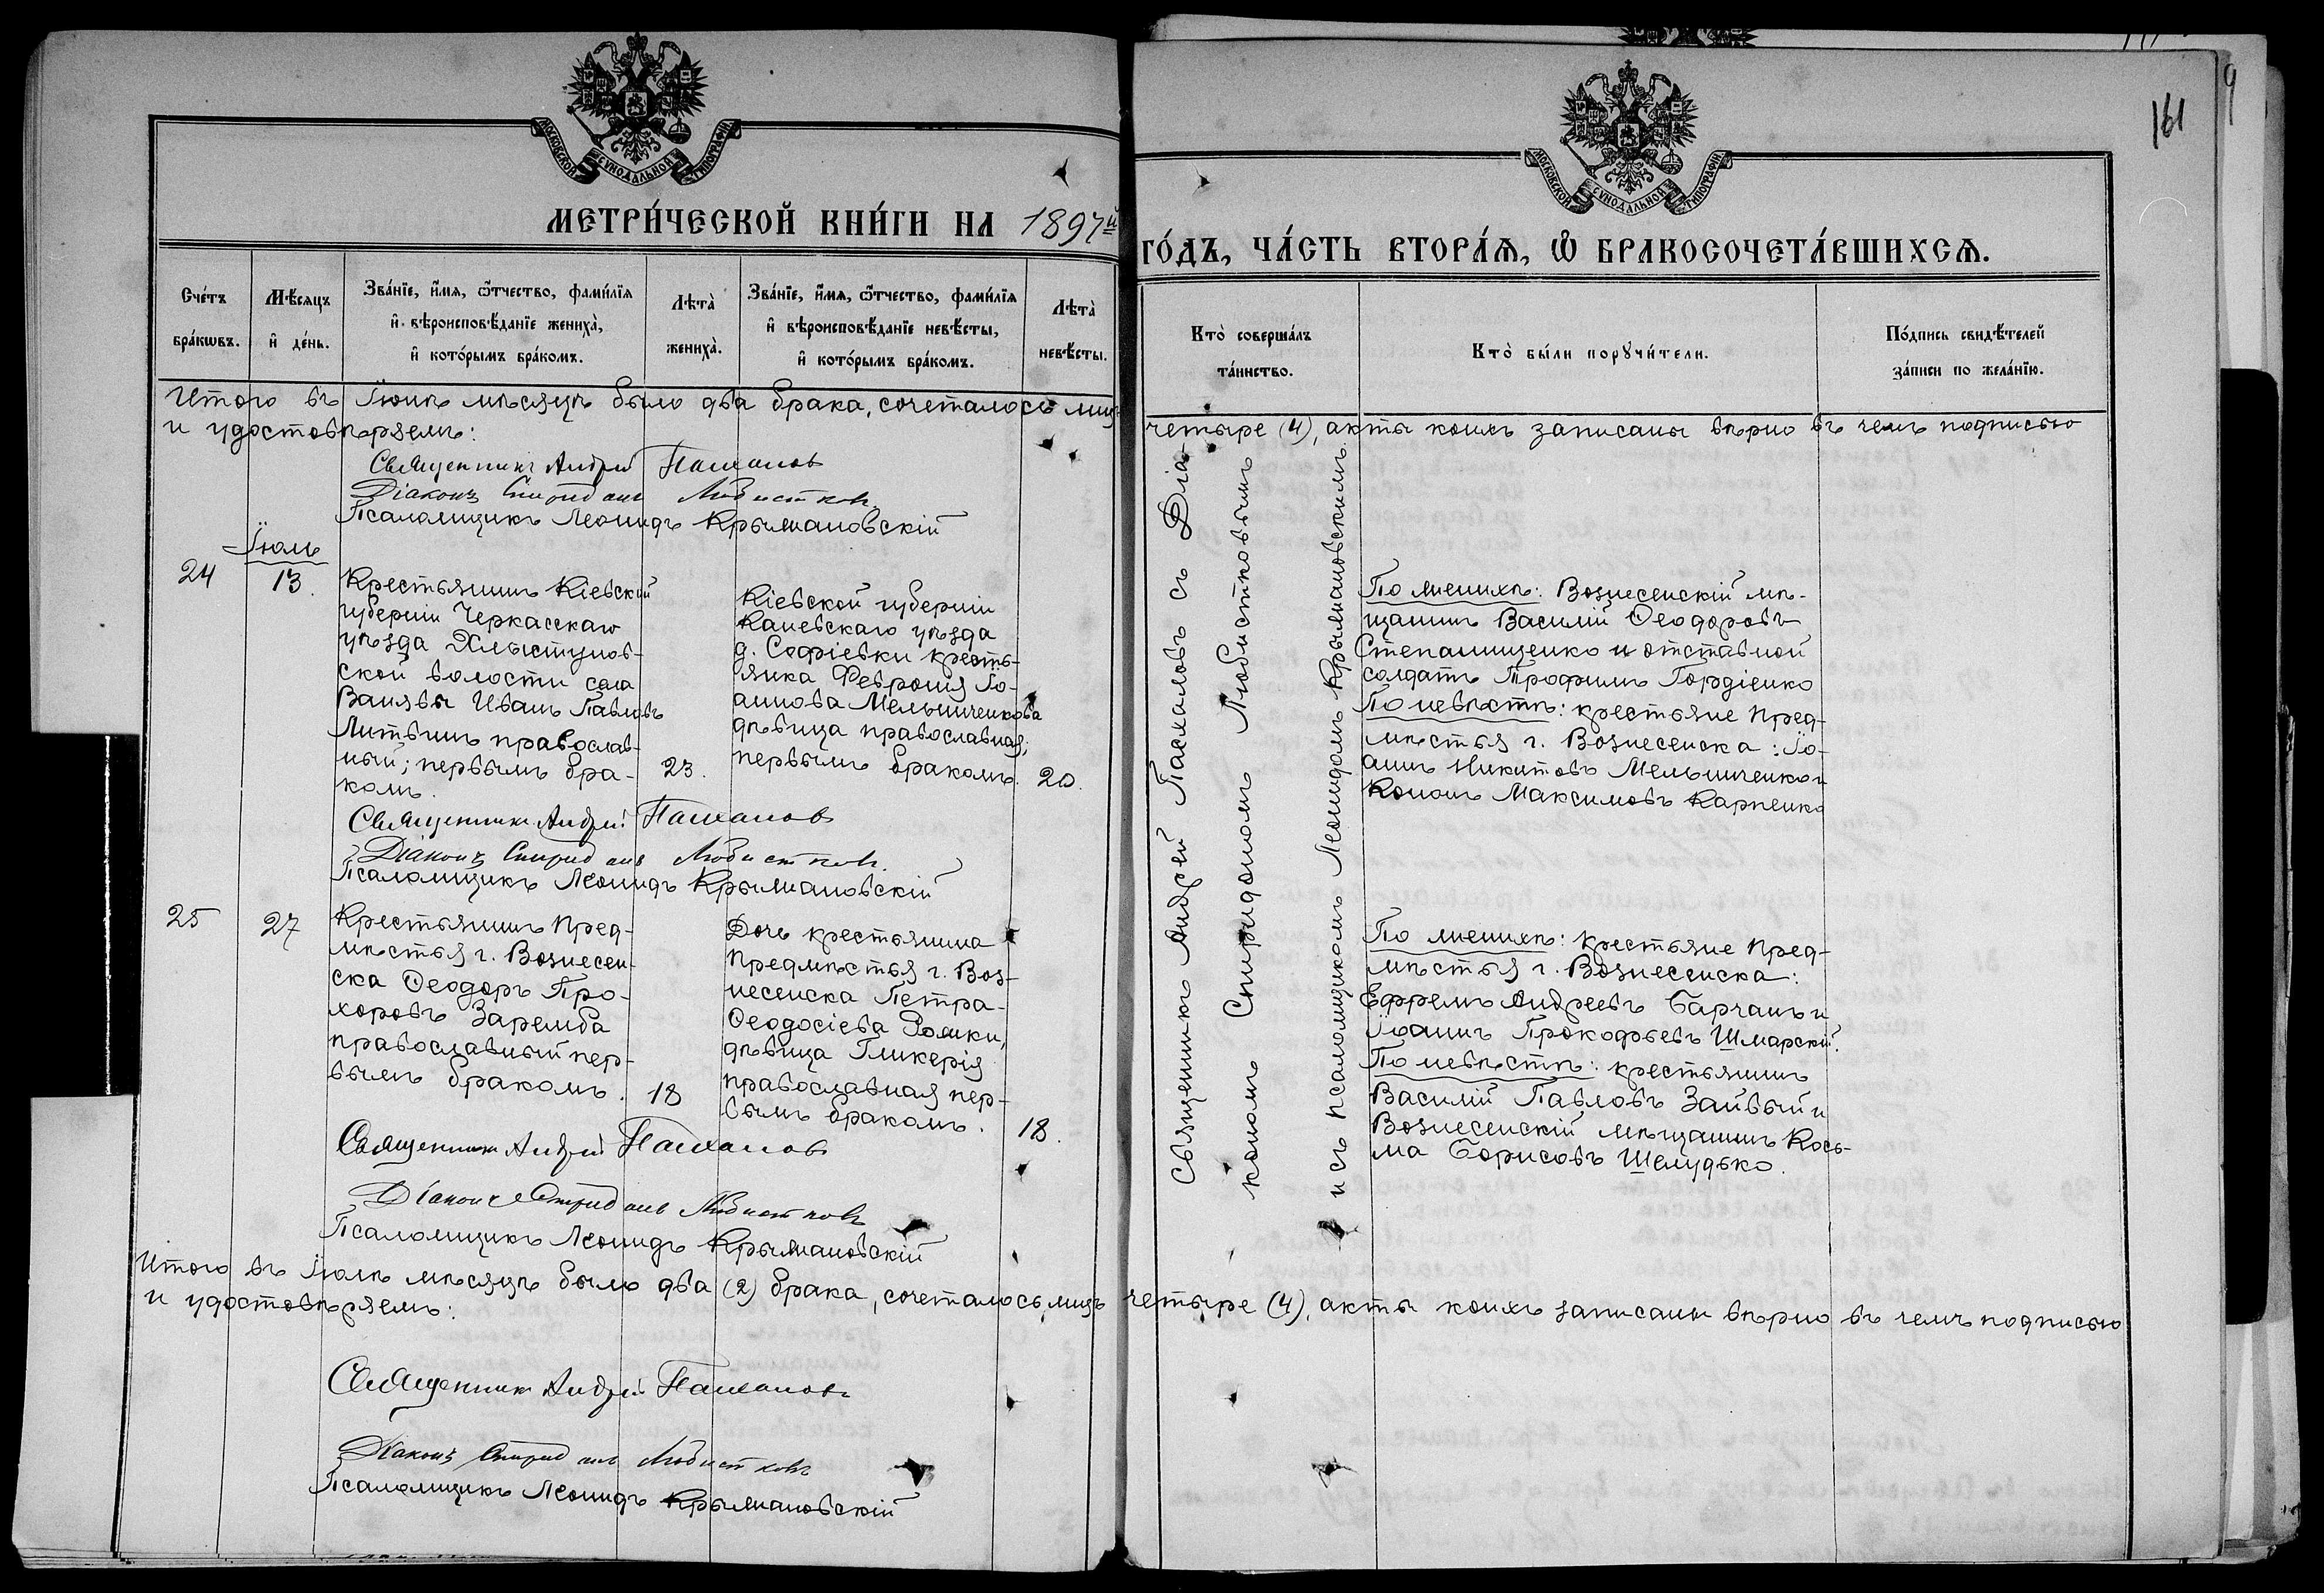 161
МОСКОВСКОЙ СѴНОДАЛЬНОЙ ТИПОГРАФІИ
МОСКОВСКОЙ СѴНОДАЛЬНОЙ ТИПОГРАФІИ
МЕТРИ́ЧЕСКОЙ КНИ́ГИ НА 1897й
ГО́ДЪ, ЧА́СТЬ ВТОРА́Ѧ, Ѽ БРАКОСОЧЕТА́ВШИХСѦ.
Сче́тъ
бра́кѡвъ.
Мѣ́сяцъ
и҆ де́нь.
Зва́нїе, и҆́мя, ѻ҆́тчество, фами́лїя
и҆ вѣроисповѣ́данїе жениха̀,
и҆ кото́рымъ бра́комъ.
Лѣта̀
жениха̀.
Зва́нїе, и҆́мя, ѻ҆́тчество, фами́лїя
и҆ вѣроисповѣ́данїе невѣ́сты,
и҆ кото́рымъ бра́комъ.
Лѣта̀
невѣ́сты.
Кто̀ соверша́лъ
та́инство.
Кто̀ бы́ли порꙋчи́тели.
По́дпись свидѣ́телей
за́писи по жела́нїю.
Итого въ Іюнѣ мѣсяцѣ было два брака, сочеталось лицъ четыре (4), акты коихъ записаны вѣрно въ чемъ подписью
и удостовѣряемъ:
Священникъ Андрей Пасхалов
Діаконъ Спиридонъ Любистковъ
Псаломщикъ Леонидъ Крыжановскій
Іюль
24
13.
Крестьянинъ Кіевской
губерніи Черкасскаго
уѣзда Хлыстунов-
ской волости села
Ванявы Иванъ Павловъ
Литвинъ православ-
ный; первымъ бра-
комъ.
23.
Кіевской губерніи
Каневскаго уѣзда
д. Софіевки кресть-
янка Февронія Іо-
аннова Мельниченкова
дѣвица православная;
первымъ бракомъ.
20.
По женихѣ: Вознесенскій мѣ-
щанинъ Василій Ѳеодоровъ
Степанищенко и отставной
солдатъ Трофимъ Гордіенко
По невѣстѣ: крестьяне Пред-
мѣстья г. Вознесенска: Іо-
аннъ Никитовъ Мельниченко и
Кононъ Максимовъ Карпенко
Священникъ Андрей Пасхалов
Діаконъ Спиридонъ Любистковъ
Псаломщикъ Леонидъ Крыжановскій
25
27
Крестьянинъ Пред-
мѣстья г. Вознесен-
ска Ѳеодоръ Про-
хоровъ Заремба
православный пер-
вымъ бракомъ.
18
Дочь крестьянина
Предмѣстья г. Воз-
несенска Петра
Ѳеодосіева Ромки,
дѣвица Гликерія
православная пер-
вымъ бракомъ.
18.
По женихѣ: крестьяне Пред-
мѣстья г. Вознесенска:
Ефремъ Андреевъ Барчанъ и
Іоаннъ Прокофьевъ Шмарскій.
По невѣстѣ: крестьянинъ
Василій Павловъ Зайвый и
Вознесенскій мѣщанинъ Кось-
ма Борисовъ Шелудько.
Священникъ Андрей Пасхаловъ съ Діа-
кономъ Спиридономъ Любистковымъ
и съ псаломщикомъ Леонидомъ Крыжановскимъ
Священникъ Андрей Пасхалов
Діаконъ Спиридонъ Любистковъ
Псаломщикъ Леонидъ Крыжановскій
Итого въ Іюлѣ мѣсяцѣ было два (2) брака, сочеталось лицъ четыре (4), акты коихъ записаны вѣрно въ чемъ подписью
и удостовѣряемъ:
Священникъ Андрей Пасхаловъ
Діаконъ Спиридонъ Любистковъ
Псаломщикъ Леонидъ Крыжановскій